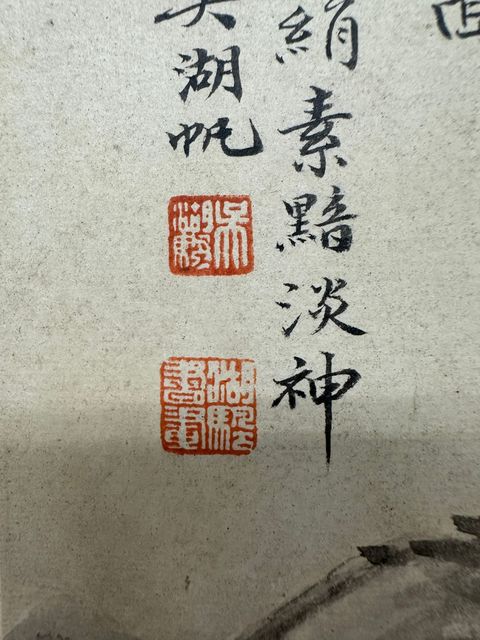 絹素黯淡神
吳湖帆
吳湖颿
湖颿書畫